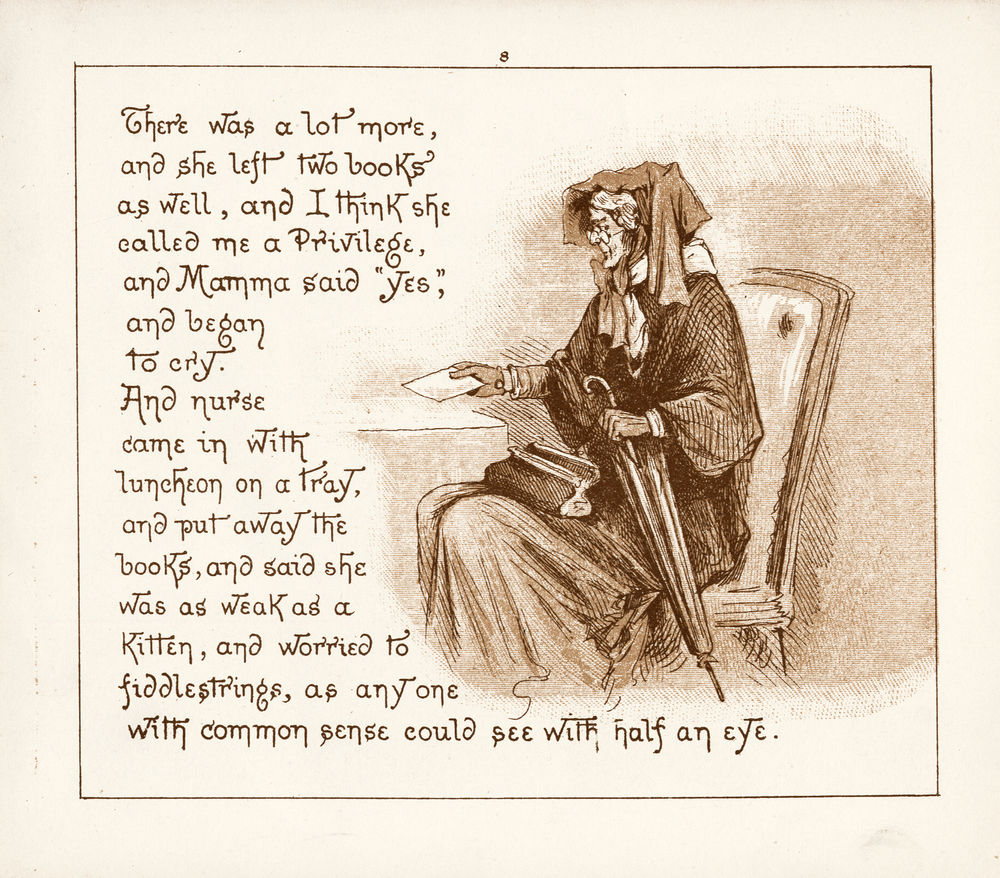 8
There was a lot more,
and she left two books
as well, and I think she
called me a Privilege,
and Mamma said "Yes",
and began
to cry.
And nurse
came in with
luncheon on a tray,
and put away the
books, and said she
was as weak as a
kitten, and worried to
fiddlestrings, as any one
with common sense could see with half an eye.